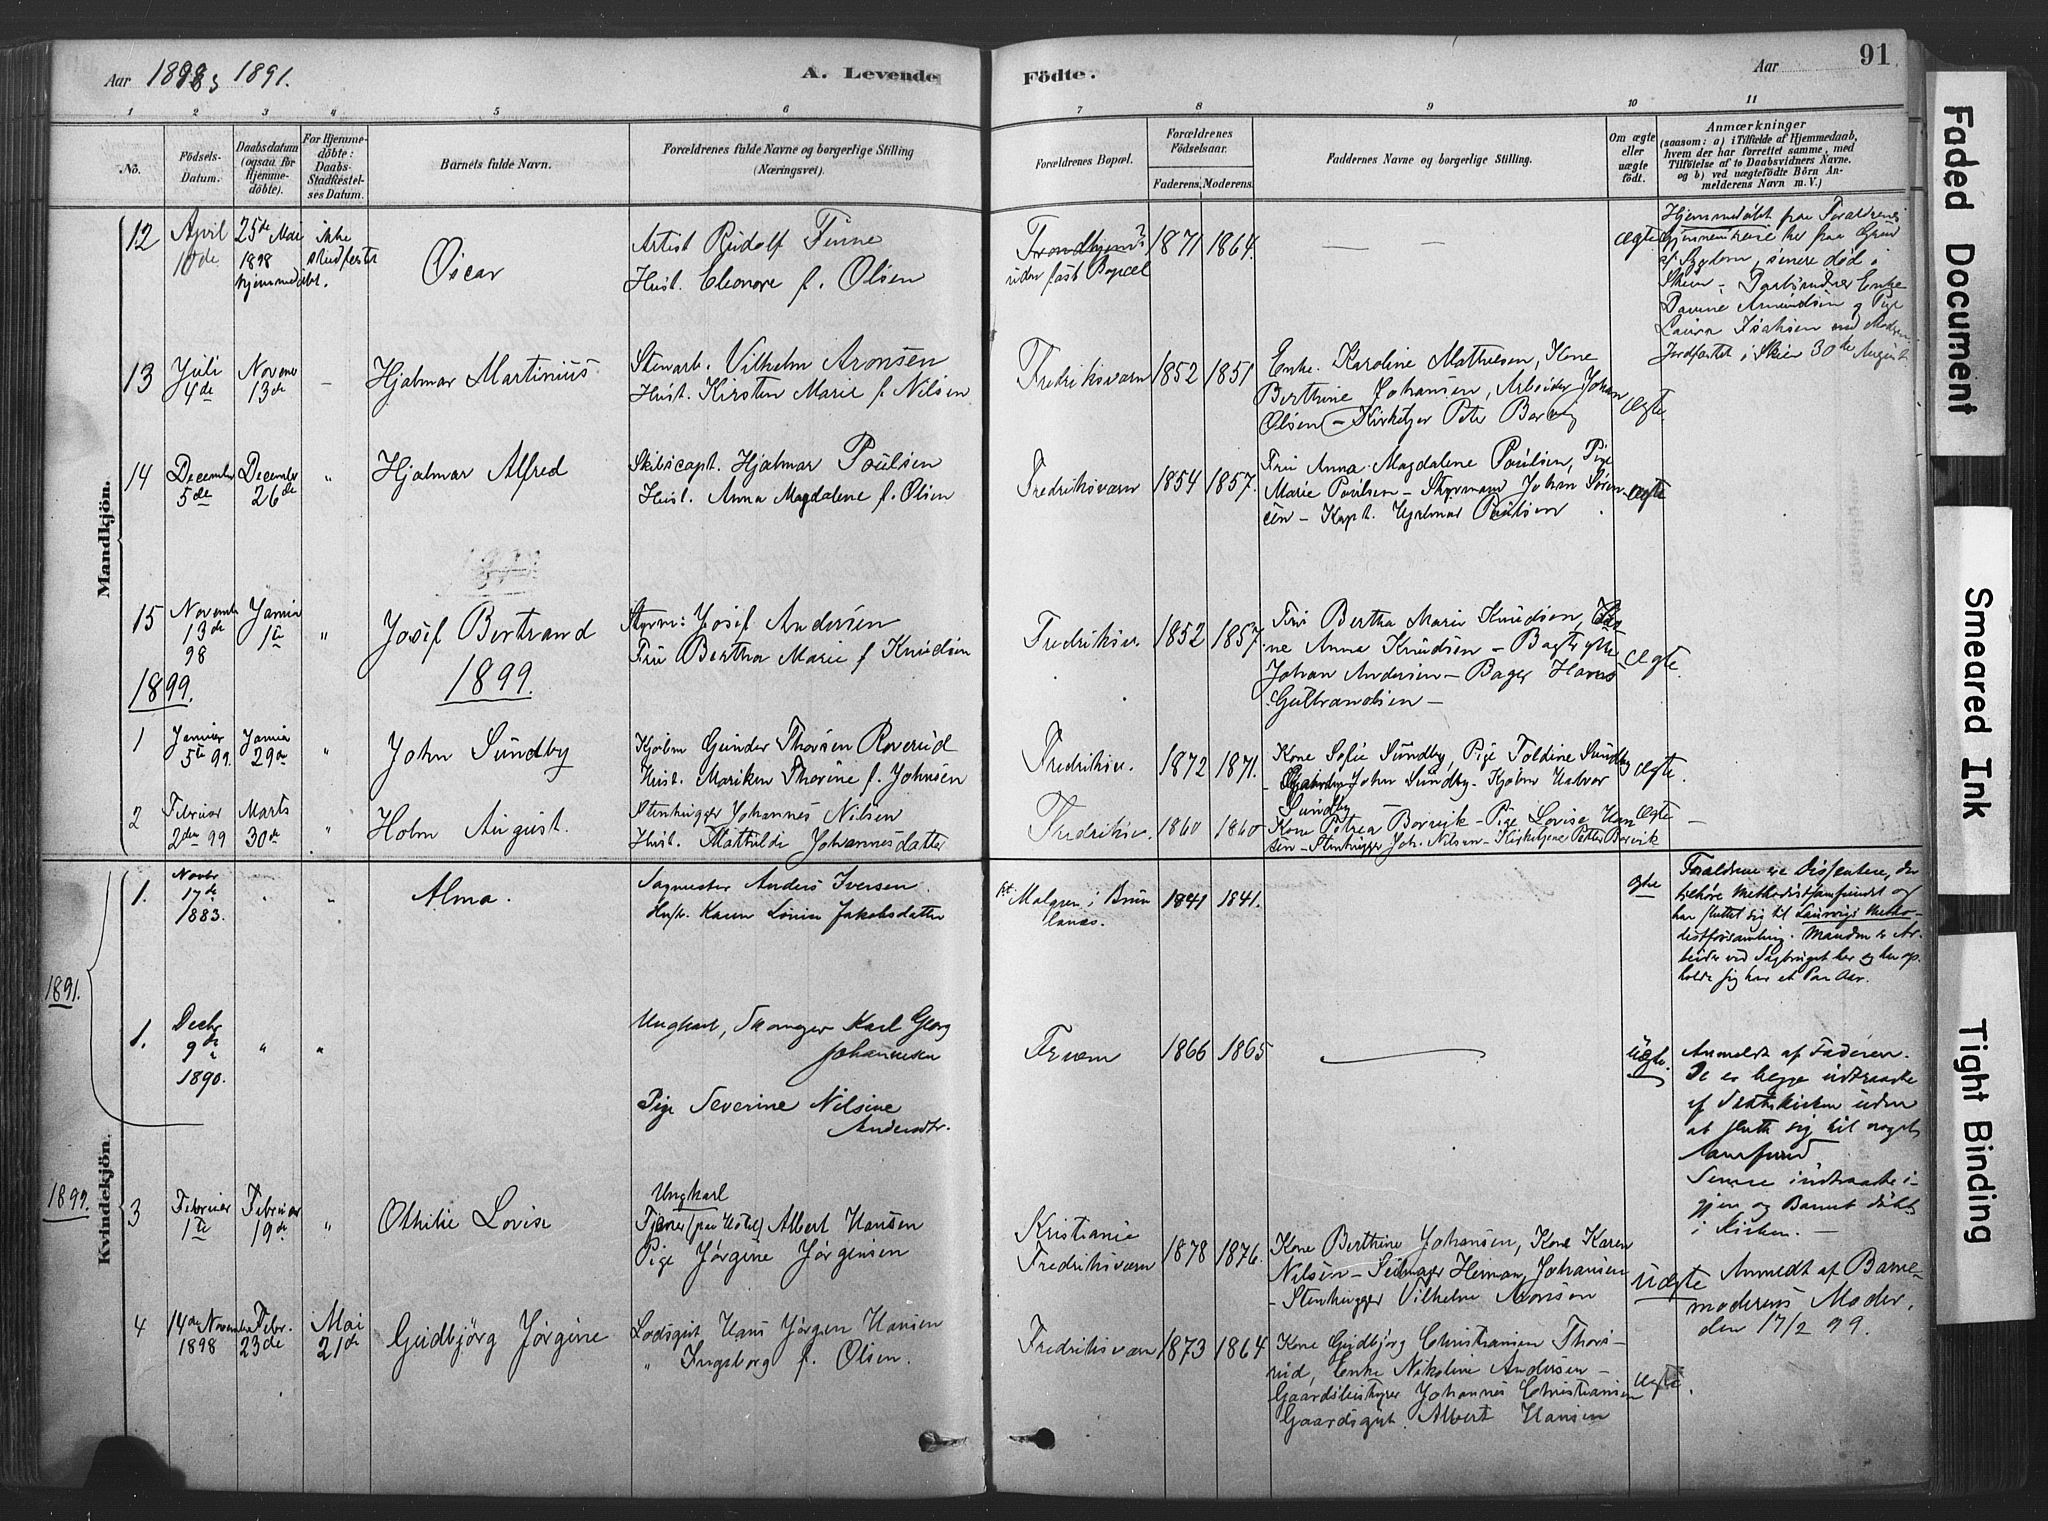 Aar 1898, 1891.
A. Levende Födte.
Aar 91
1 2 3 4 5 6 7 8 9 10 11
No.
Födsels-Datum.
Daabsdatum (ogsaa for Hjemmedöbte).
For Hjemmedöbte: Daabs-Stadfæstelses Datum.
Barnets fulde Navn.
Forældrenes fulde Navne og borgerlige Stilling (Næringsvei).
Forældrenes Bopæl.
Forældrenes Födselsaar.
Faderens. Moderens.
Faddernes Navne og borgerlige Stilling.
Om ægte eller uægte födt.
Anmærkninger
(saasom: a) i Tilfælde af Hjemmedaab, hvem der har forrettet samme, med Tilföielse af to Daabsvidners Navne. og b) ved uægtefödte Börn Anmelderens Navn m. V.)
Mandkjön.
12 April 10de 25de Mai 1898 hjemmedöbt. ikke stadfæstet Oscar
Artist Rudolf Finne
Hust. Eleonore f. Olsen
Trondhjem? uden fast Bopæl 1871 1864. — — Ægte
Hjemmedöbt paa Forældrenes
Gjennemreise her paa Grund
af Sygdom, senere död i
Skien – Daabsvidner Enke
Davine Amundsen og Pige
Laura Isaksen
Jordfæstet i Skien 30te August
13 Juli 4de Novem 13de – Hjalmar Martinius
Stenarb. Vilhelm Aronsen
Hust. Kirsten Marie f. Nilsen
Fredriksværn 1852 1851
Enke Karoline Mathiesen, Kone
Berthine Johansen, Arbeider Johan
Olsen – Kirketjer Peter Borvig
Ægte
14 December 5de December 26de " Hjalmar Alfred
Skibscapt. Hjalmar Poulsen
Hust. Anna Magdalene f. Olsen
Fredriksværn 1854 1857.
Fru Anna Magdalene Poulsen, Pige
Marie Poulsen – Styrmand Johan Sören-
sen – Kapt. Hjalmar Poulsen
Ægte
15 Novemb 13de 98 Janua 1te " Josef Bertrand
Styrm: Josef Andersen
Fru Bertha Marie f Knudsen
Fredriksv. 1852 1857.
Fru Bertha Marie Knudsen,
ne Anna Knudsen –
Johan Andersen – Bager Hans
Gulbrandsen –
Ægte.
1899. 1899.
1 Januar 5te 99. Janua 29de " John Sundby
Kjöbm Gunder Thorsen Roverud
Hust. Mariken Thorine f. Johnsen
Fredriksv. 1872 1871.
Kone Sofie Sundby, Pige Toldine Sundby
John Sundby – Kjöbm Halvor
Sundby
Ægte.
2 Februar 2den 99 Marts 30de " Holm August.
Stenhugger Johannes Nilsen
Hust. Mathilde Johannesdatter
Fredriksv. 1860 1860
Kone Petrea Borvik – Pige Lovise Han
sen – Stenhugger Joh. Nilsen – Kirketjener Petter Borvik
Ægte –
1891.
1. Novbr 17de 1883. " " Alma.
Sagmester Anders Iversen.
Hustr. Karen Lovise Jakobsdatter
Malgren i Brun
lanæs. 1841 1841. ægte
Forældrene ere Dissentere, der
tilhöre Methodistsamfundet og
har sluttet sig til Laurvigs Metho-
distforsamling. Manden er Ar-
beider ved Sagbruget her og har op-
holdt sig her et Par Aar.
1. Decbr 9de 1890. " "
Ungkarl, Skomager Karl Georg
Johannesen
Pige Severine Nilsine
Andersdtr.
Frværn 1866 1865 — uægte.
Anmeldt af Faderen.
De er begge udtraadte
af Statskirken uden
at slutte sig til noget
samfund
Senere indtraadte i-
gjen og Barnet döbt
i Kirken. —
Kvindekjön.
1899.
3 Februar 1te Februar 19de " Othilie Lovise
Ungkarl
Tjener (paa Hotel) Albert Hansen
Pige Jörgine Jörgensen
Kristiania
Fredriksværn 1878 1876.
Kone Berthine Johansen, Kone Karen
Nilsen – Herman Johansen
– Stenhugger Vilhelm Aronson
Uægte
Anmeldt af Barne-
moderens Moder.
den 17/2 99.
4 14de Novemb 1898 Febr. 23de Mai 21de Gudbjörg Jörgine
Lodsgut Hans Jörgen Hansen
" Ingeborg f. Olsen.
Fredriksværn 1873 1864
Kone Gudbjörg Christiansen Thors-
rud, Enke Nikoline Andersen –
Gaardsbestyrer Johannes Christiansen
Gaardsgut. Albert Hansen
Ægte.
Faded Document
Smeared Ink
Tight Binding